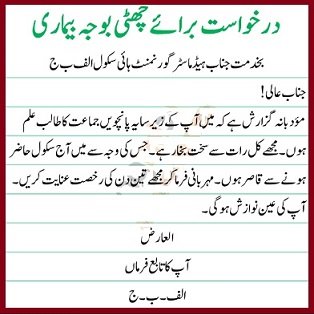 درخواست برائے چھٹی بوجہ بیماری
بخدمت جناب ہیڈ ماسٹر گورنمنٹ ہائی سکول الف ب ج
جناب عالی!
مؤدبانہ گزارش ہے کہ میں آپ کے زیر سایہ پانچویں جماعت کا طالب علم
ہوں۔ مجھے کل رات سے سخت بخار ہے۔ جس کی وجہ سے میں آج سکول حاضر
ہونے سے قاصر ہوں۔ مہربانی فرما کر مجھے تین دن کی رخصت عنایت کریں۔
آپ کی عین نوازش ہو گی۔
العارض
آپ کا تابع فرماں
الف۔ب۔ج